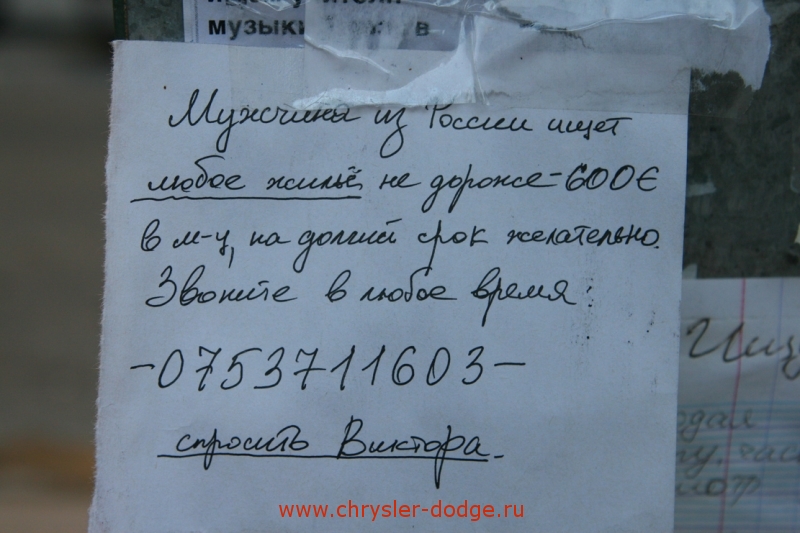 музыки
Мужчина из России ищет
любое жильё не дороже - 600€
в м-ц, на долгий срок желательно.
Звоните в любое время:
- 0753711603 -
спросить Виктора.
www.chrysler-dodge.ru